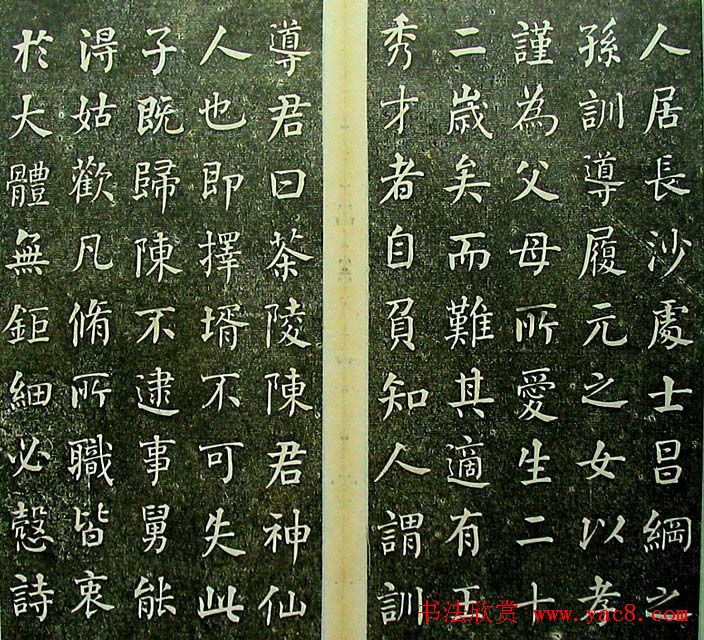 人居長沙處士昌綱之
孫訓導履元之女以孝
謹為父母所愛生二十
二歲矣而難其適有王
秀才者自負知人謂訓
導君曰茶陵陳君神仙
人也即擇壻不可失此
子既歸陳不逮事舅能
得姑歡凡脩所職皆衷
於大體無鉅細必慤詩
书法欣赏 www.yac8.com